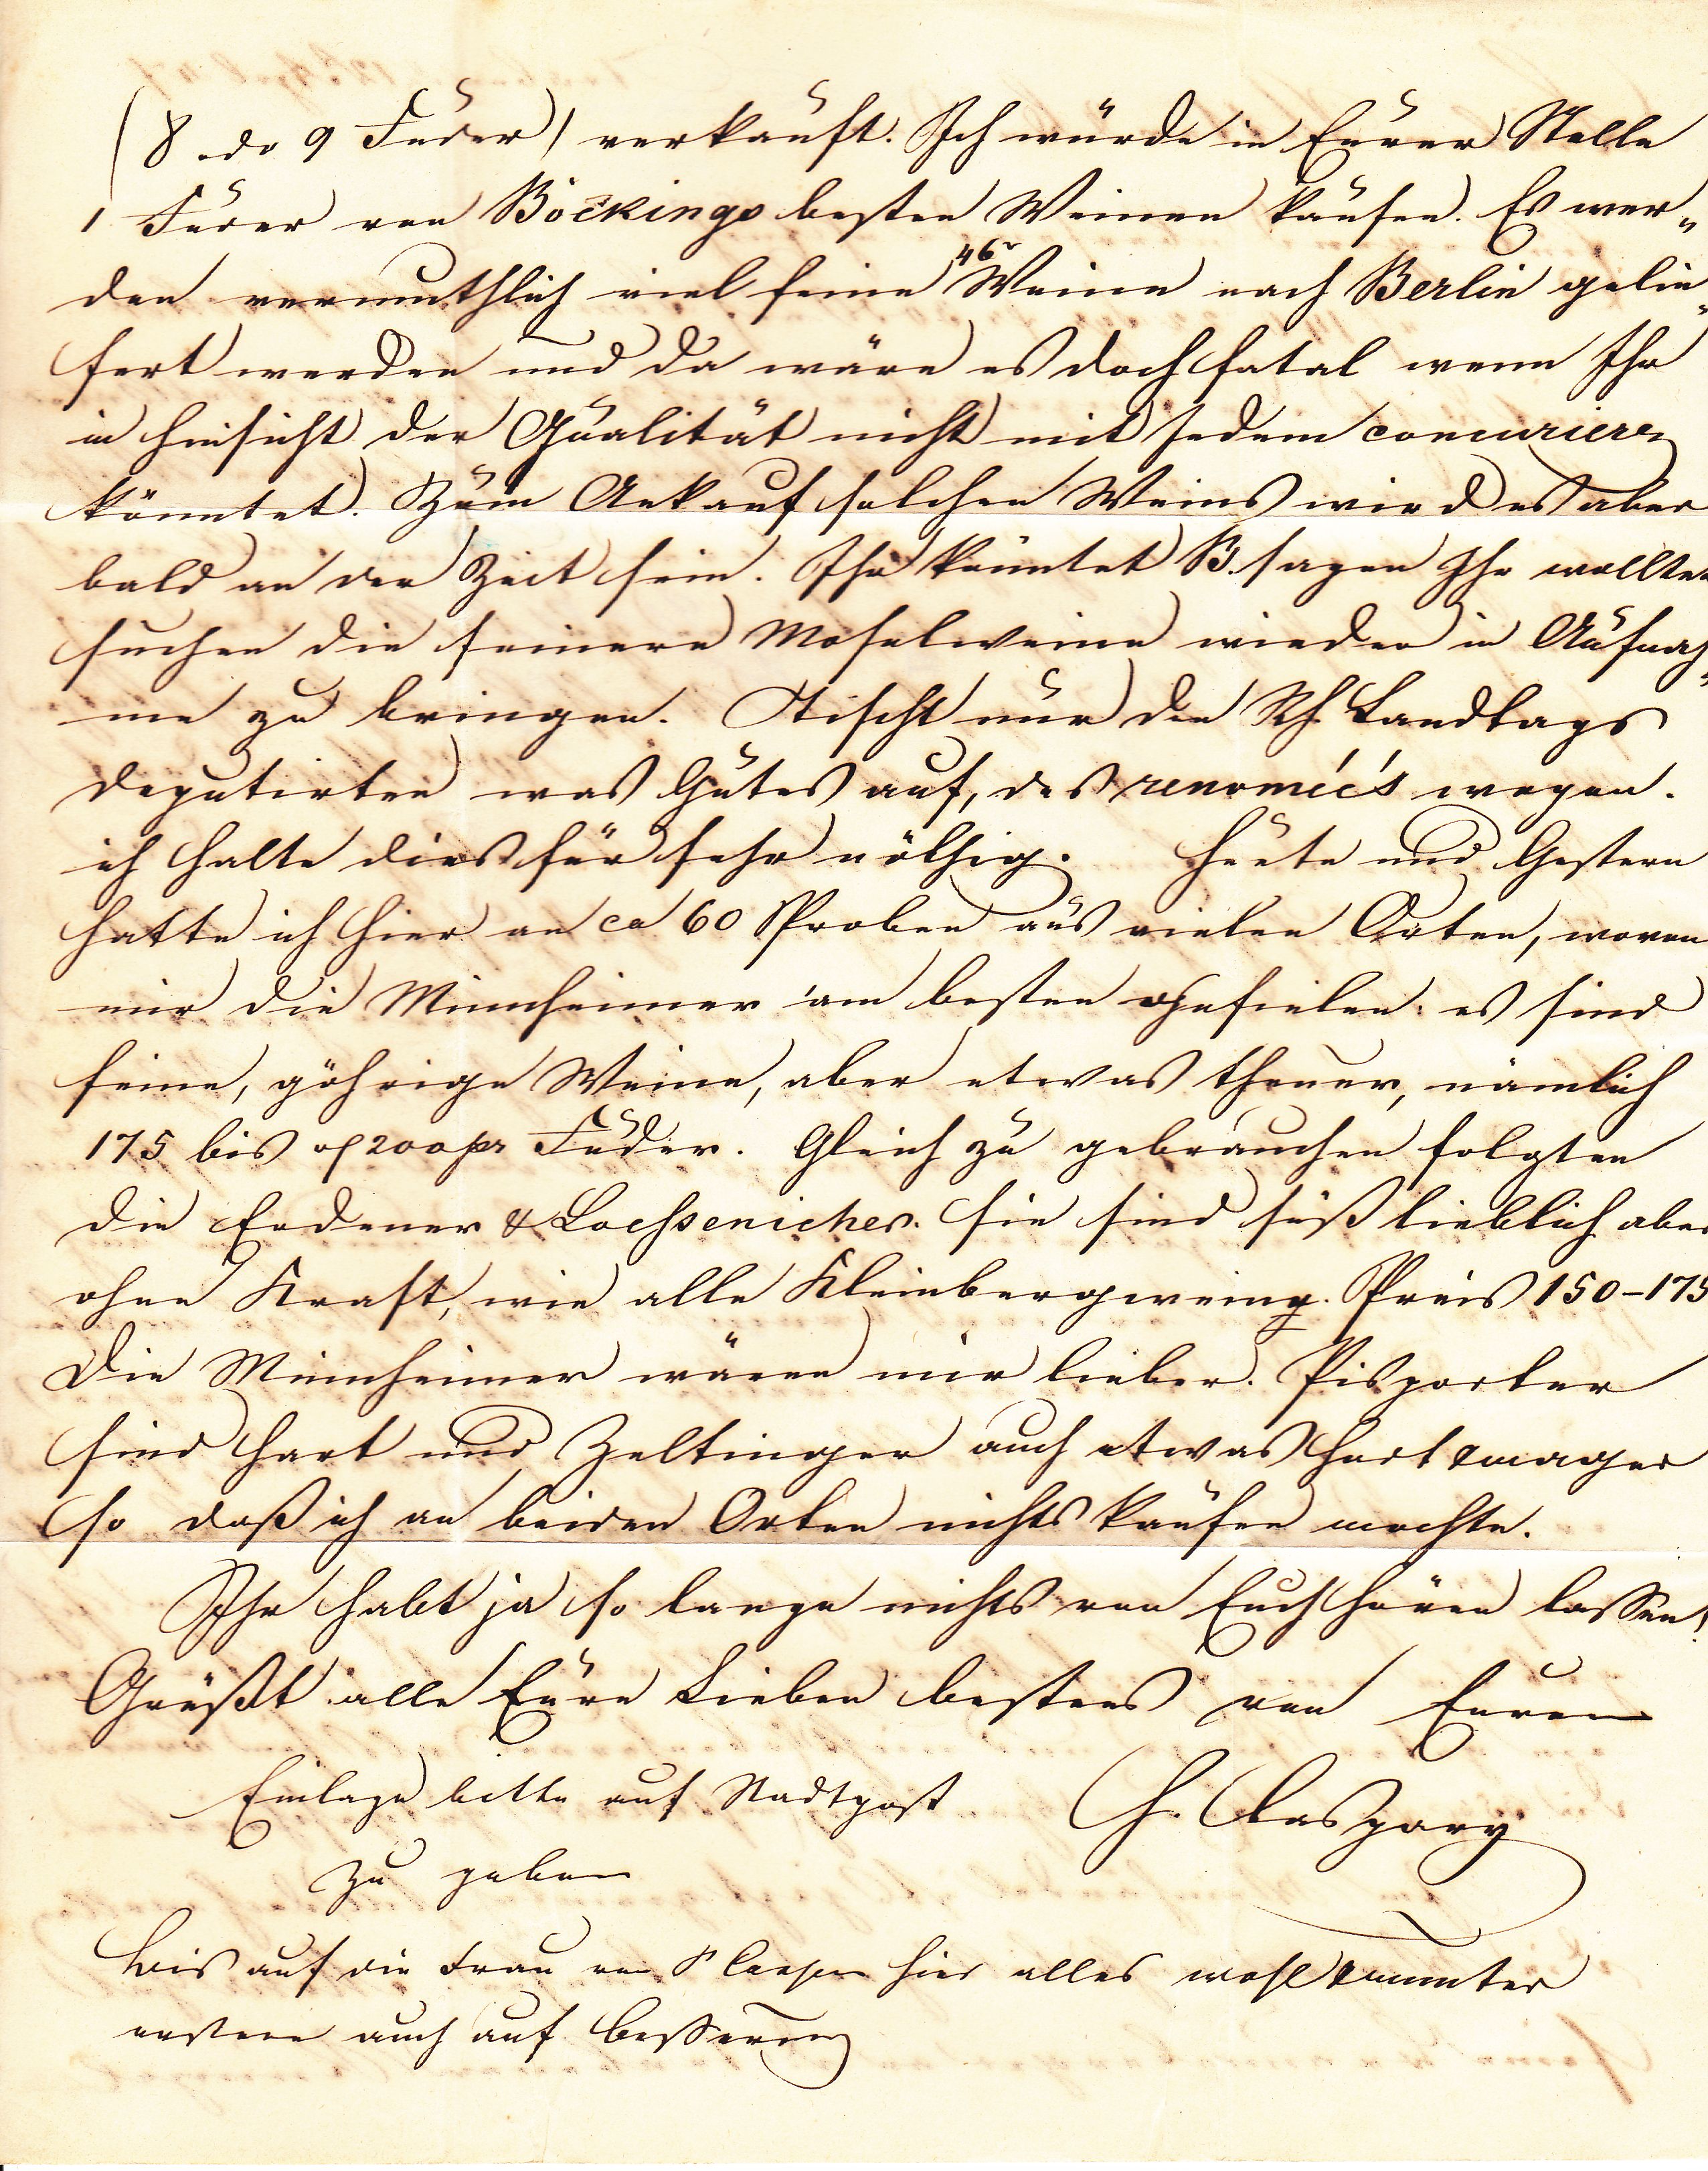 (8 odr 9 Fuder) verkauft. Ich würde in Eurer Stelle
1 Fuder von Böckings besten Weinen kaufen. Es wer„
den vermuthlich viel feine 46r Weine nach Berlin gelie„
fert werden und da wäre es doch fatal wenn Ihr
in hinsicht der Qualität nicht mit jedem concurieren
könntet. Zum Ankauf solchen Weins wird es aber
bald an der Zeit sein. Ihr könntet B. sagen Ihr wolltet
suchen die feinere Moselweine wieder in Aufnah„
me zu bringen. Tischt nur den Rh. Landtags
deputirten was Gutes auf, des renomée's wegen.
ich halte dies für sehr nöthig. Heute und Gestern
hatte ich hier an ca 60 Proben aus vielen Orten, wovon
mir die Minnheimer am besten gefielen: es sind
feine, göhrige Weine, aber etwas theuer, nämlich
175 bis 200 pr Fuder. Gleich zu gebrauchen folgten
die Erdener & Loessenicher. Sie sind süß lieblich aber
ohne Kraft, wie alle Kleinbergweine. Preis 150–175
Die Minnheimer wären mir lieber. Pisporter
sind hart und Zeltinger auch etwas hart & mager
so daß ich an beiden Orten nichts kaufen mochte.
Ihr habt ja so lange nichts von Euch hören lassen!
Grüßt alle Eure Lieben bestens von Eurem
Einlage bitte auf Stadtpost H. Caspary
zu geben
Bis auf die Frau von hier alles wohl & munter
erstere auch auf Besserung